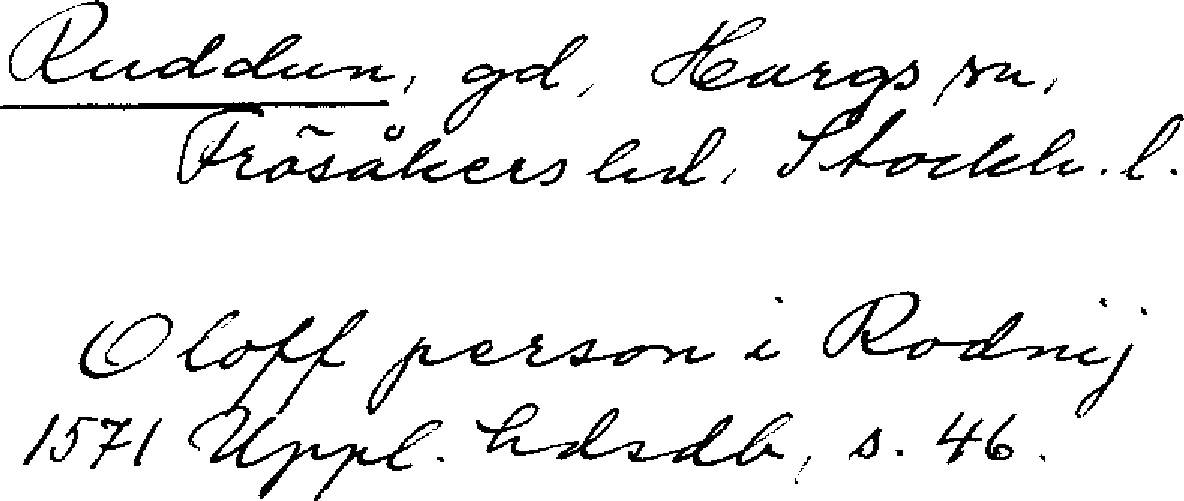 Ruddun, gd, Hargs sn,
Frösåkers hd, Stockh. l.
Oloff person i Rodnij
1571 Uppl. hdsdb, s. 46.